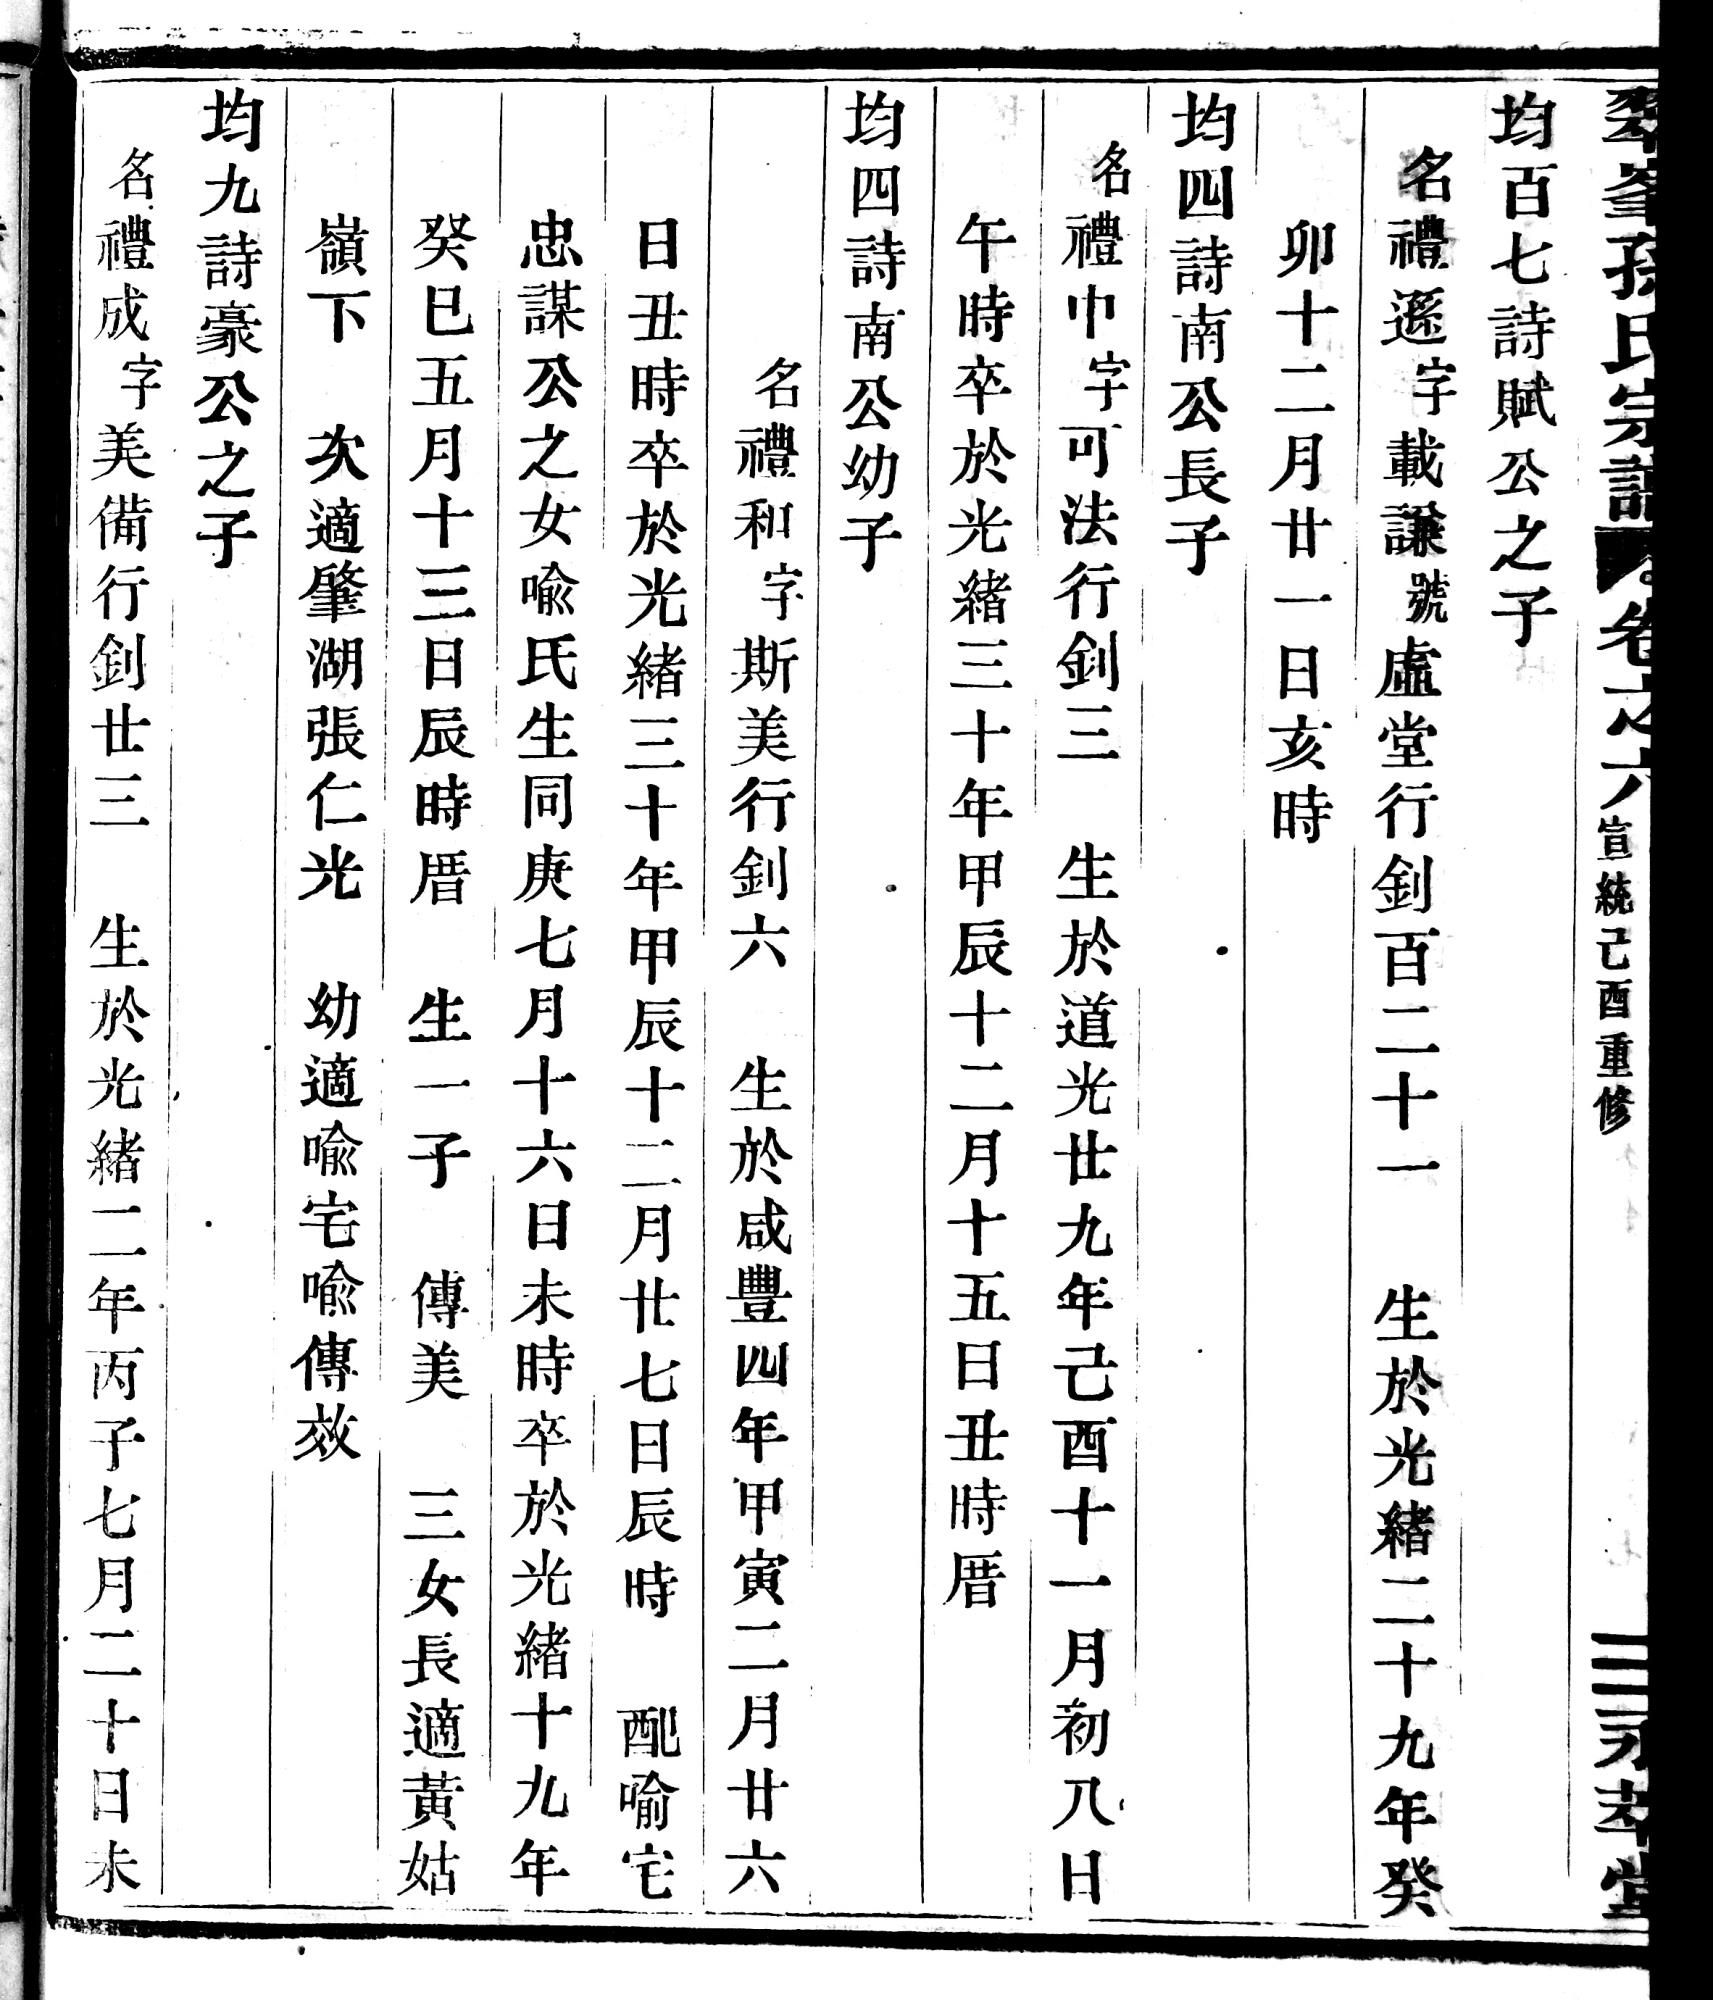 翠峯孫氏宗譜 卷之六 宣統己酉重修 二 永萃堂
均百七詩賦公之子
名禮遜字載謙號虛堂行釗百二十一 生於光緒二十九年癸
卯十二月廿一日亥時
均四詩南公長子
名禮巾字可法行釗三 生於道光廿九年己酉十一月初八日
午時卒於光緒三十年甲辰十二月十五日丑時厝
均四詩南公幼子
名禮和字斯美行釗六 生於咸豐四年甲寅二月廿六
日丑時卒於光緒三十年甲辰十二月廿七日辰時 配喻宅
忠謀公之女喻氏生同庚七月十六日未時卒於光緒十九年
癸巳五月十三日辰時厝 生一子 傳美 三女長適黃姑
嶺下 次適肇湖張仁光 幼適喻宅喻傳效
均九詩豪公之子
名禮成字美備行釗廿三 生於光緒二年丙子七月二十日未